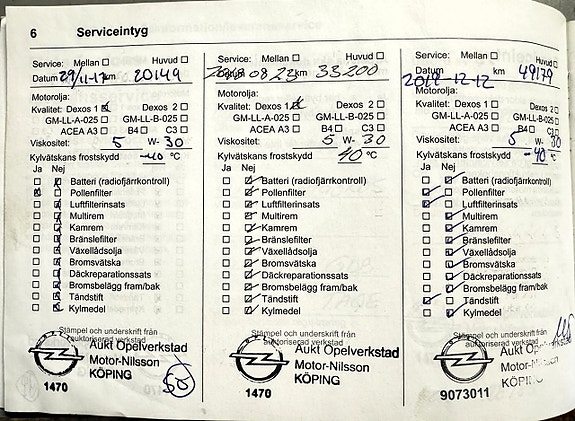 6 Serviceintyg
Service: Mellan Huvud
Datum 29/11-17 km 20149
Motorolja:
Kvalitet: Dexos 1 Dexos 2
GM-LL-A-025 GM-LL-B-025
ACEA A3 B4 C3
Viskositet: 5 W- 30
Kylvätskans frostskydd -40 °C
Ja Nej
Batteri (radiofjärrkontroll)
Pollenfilter
Luftfilterinsats
Multirem
Kamrem
Bränslefilter
Växellådsolja
Bromsvätska
Däckreparationssats
Bromsbelägg fram/bak
Tändstift
Kylmedel
Stämpel och underskrift från
auktoriserad verkstad
Aukt Opelverkstad
Motor-Nilsson
KÖPING
1470
Service: Mellan Huvud
2018 08 23 km 33200
Motorolja:
Kvalitet: Dexos 1 Dexos 2
GM-LL-A-025 GM-LL-B-025
ACEA A3 B4 C3
Viskositet: 5 W- 30
Kylvätskans frostskydd 40 °C
Ja Nej
Batteri (radiofjärrkontroll)
Pollenfilter
Luftfilterinsats
Multirem
Kamrem
Bränslefilter
Växellådsolja
Bromsvätska
Däckreparationssats
Bromsbelägg fram/bak
Tändstift
Kylmedel
Stämpel och underskrift från
auktoriserad verkstad
Aukt Opelverkstad
Motor-Nilsson
KÖPING
1470
Service: Mellan Huvud
Datum km 49179
12-12
Motorolja:
Kvalitet: Dexos 1 Dexos 2
GM-LL-A-025 GM-LL-B-025
ACEA A3 B4 C3
Viskositet: 5 W- 30
Kylvätskans frostskydd -40 °C
Ja Nej
Batteri (radiofjärrkontroll)
Pollenfilter
Luftfilterinsats
Multirem
Kamrem
Bränslefilter
Växellådsolja
Bromsvätska
Däckreparationssats
Bromsbelägg fram/bak
Tändstift
Kylmedel
Stämpel och underskrift från
auktoriserad verkstad
Aukt Opelverkstad
Motor-
KÖPING
9073011